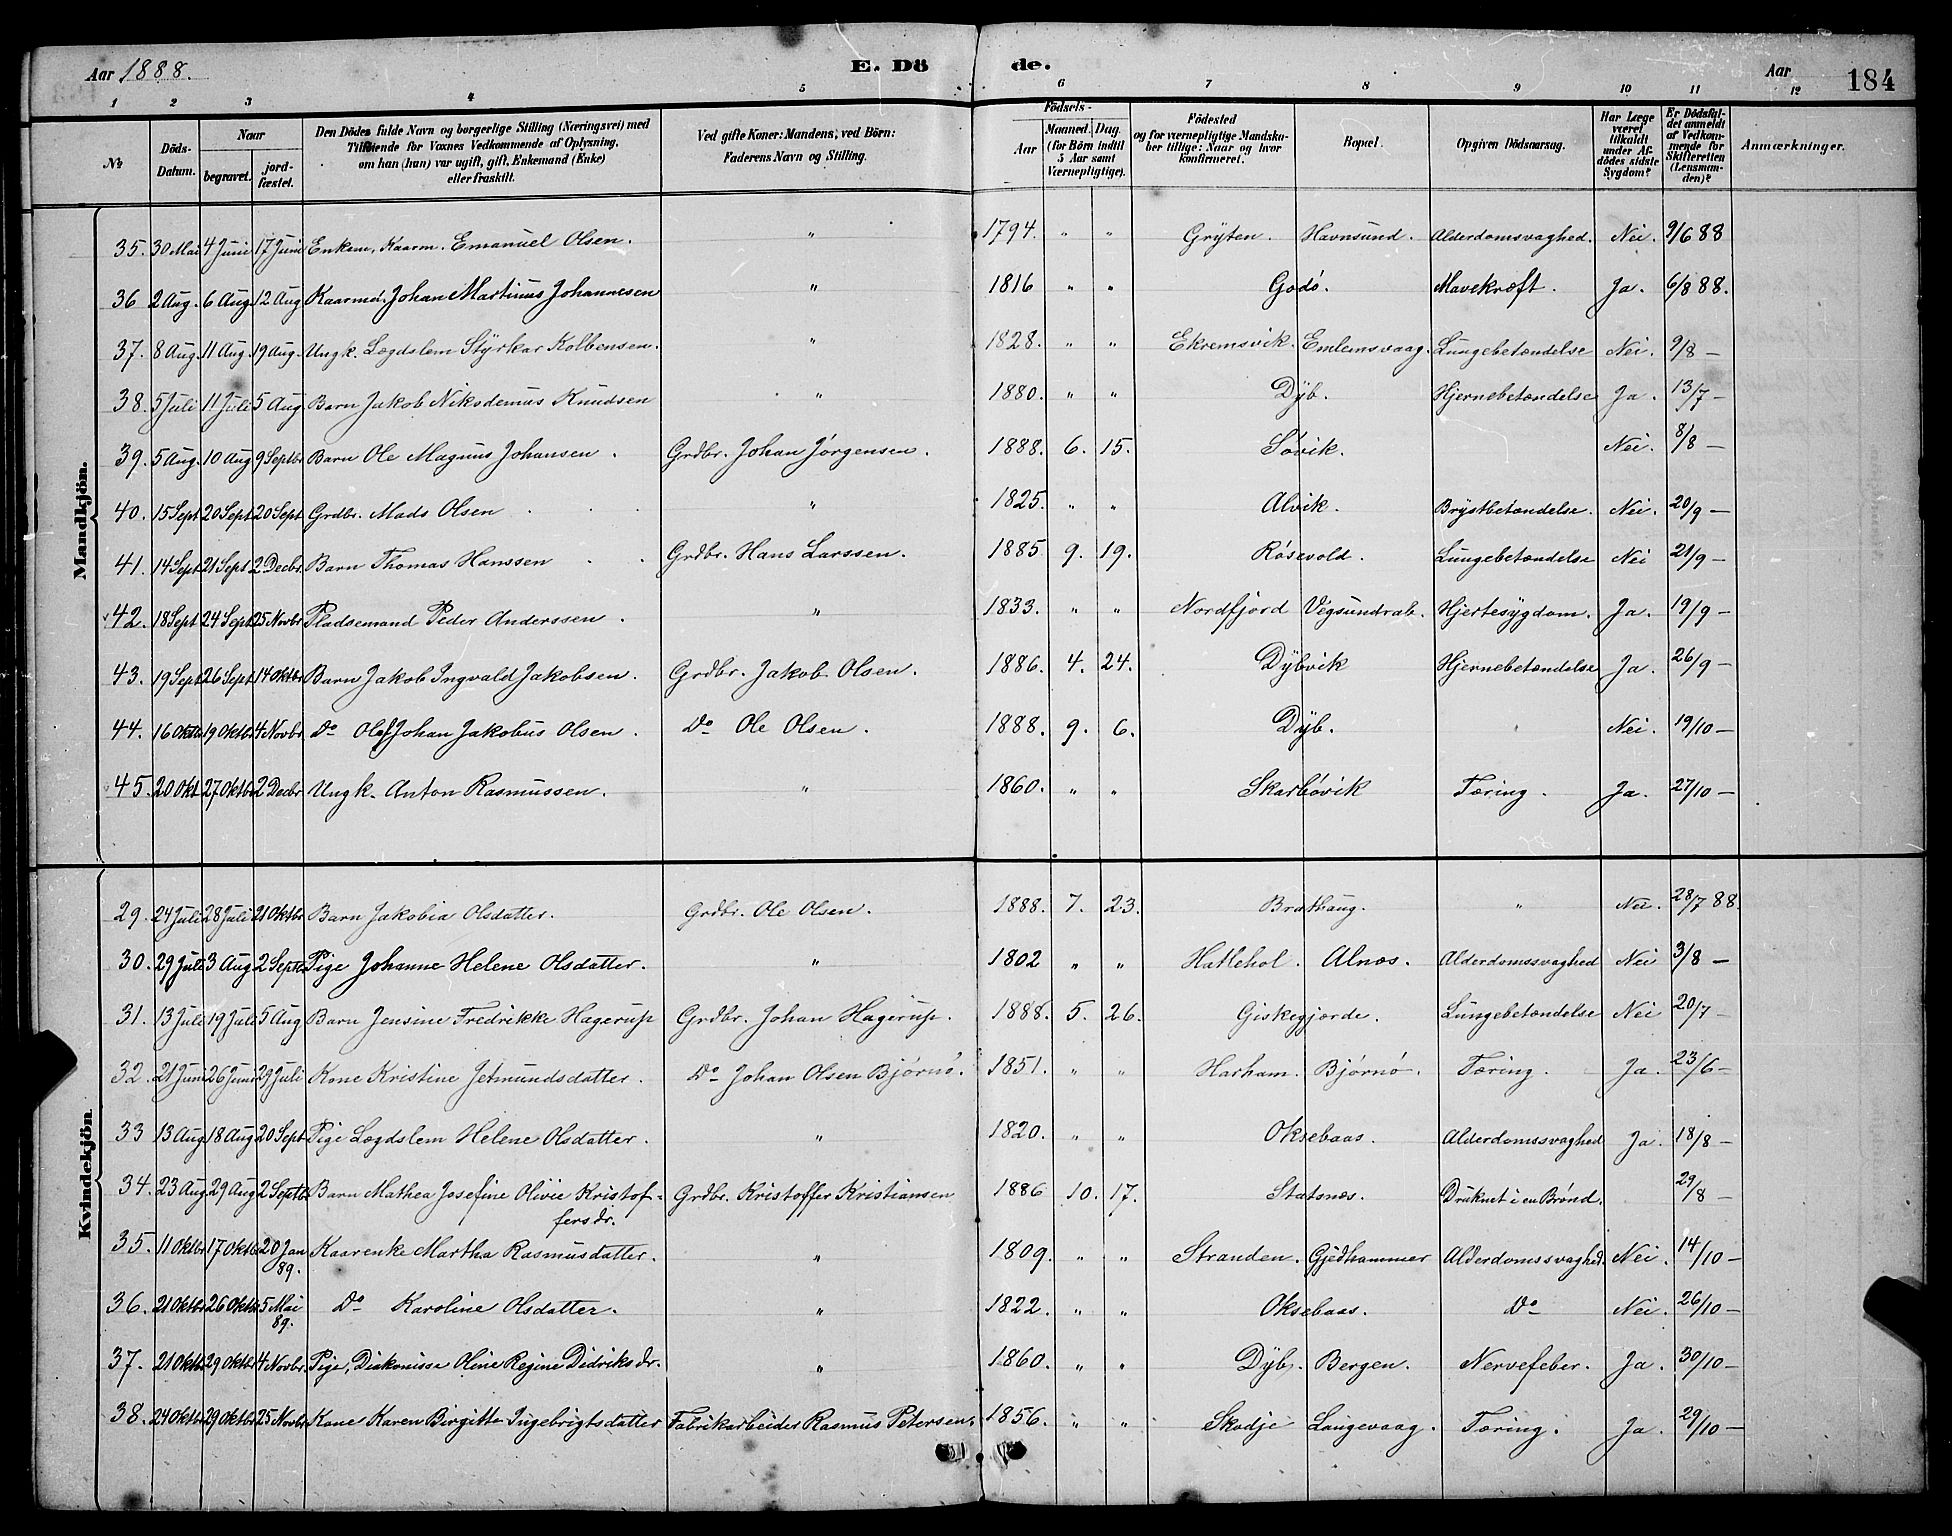 Aar 1888. E. Dö de. Aar 184
1 2 3 4 5 6 7 8 9 10 11 12
No Döds-Datum. Naar begravet. jord-fæstet. Den Dödes fulde Navn og borgerlige Stilling (Næringsvei) med Tilföiende for Voxnes Vedkommende af Oplysning, om han (hun) var ugift, gift, Enkemand (Enke) eller fraskilt. Ved gifte Koner: Mandens, ved Börn: Faderens Navn og Stilling. Födsels- Aar Maaned. Dag. (for Börn indtil 5 Aar samt Værnepligtige). Födested og for værnepligtige Mandskaber tillige: Naar og hvor konfirmeret. Bopæl. Opgiven Dödsaarsag. Har Læge været tilkaldt under Afdödes sidste Sygdom? Er Dödsfaldet anmeldt af Vedkommende for Skifteretten (Lensmanden)? Anmærkninger.
Mandkjön.
35. 30 Mai 4 Juni 17 Juni Enkem. Kaarm. Emanuel Olsen. " 1794. " " Gryten. Havnsund. Alderdomsvaghed. Nei. 9/6 88
36 2 Aug. 6 Aug. 12 Aug Kaarmd. Johan Martinus Johannesen " 1816 " " Godö. Mavekræft. Ja. 6/8 88.
37. 8 Aug. 11 Aug. 19 Aug. Ungk. Lægdslem Styrkar Kolbensen. " 1828. " " Ekremsvik. Emlemsvaag. Lungebetændelse Nei. 9/8 –
38. 5 Juli 11 Juli 5 Aug. Barn Jakob Nikodemus Knudsen " 1880. " " Dyb. Hjernebetændelse Ja. 13/7 –
39. 5 Aug. 10 Aug 9 Septbr Barn Ole Magnus Johansen. Grdbr. Johan Jörgensen. 1888. 6. 15. Sövik. Nei. 8/8 –
40. 15 Sept 20 Sept 20 Sept Grdbr. Mads Olsen " 1825. " " Alvik. Brystbetændelse. Nei. 20/9 –
41. 14 Sept 21 Sept 2 Decbr. Barn Thomas Hanssen Grdbr. Hans Larssen. 1885. 9. 19. Rösevold. Lungebetændelse Nei 21/9 –
42. 18 Sept 24 Sept 25 Novbr Pladsemand Peder Anderssen. " 1833. " " Nordfjord Vegsundrab. Hjertesygdom. Ja. 19/9 –
43. 19 Sept 26 Sept. 14 Oktbr Barn Jakob Ingvald Jakobsen. Grdbr. Jakob Olsen. 1886. 4. 24. Dybvik Hjernebetændelse Ja. 26/9 –
44. 16 Oktbr 19 Oktbr 4 Novbr. Do Olaf Johan Jakobus Olsen. Do Ole Olsen. 1888. 9. 6. Dyb. " Nei. 19/10 –
45. 20 Okt 27 Oktbr 2 Decbr Ungk. Anton Rasmussen. " 1860. " " Skarbövik Tæring. Ja. 27/10 –
Kvindekjön
29. 24 Juli 28 Juli 21 Oktbr Barn Jakobia Olsdatter. Grdbr. Ole Olsen. 1888. 7. 23. Brathaug. " Nei. 28/7 88.
30. 29 Juli 3 Aug 2 Septbr Pige Johanne Helene Olsdatter. " 1802 " " Hatlehol. Alnæs. Alderdomssvaghed Nei 3/8 –
31. 13 Juli 19 Juli 5 Aug Barn Jensine Fredrikke Hagerup Grdbr. Johan Hagerup. 1888. 5. 26. Giskegjærde. Lungebetændelse Nei 20/7 –
32. 21 Juni 26 Juni 29 Juli Kone Kristine Jetmundsdatter. Do Johan Olsen Bjørnö. 1851. " " Harham. Bjørnö. Tæring. Ja. 23/6 –
33 13 Aug 18 Aug 20 Sept Pige Lægdslem Helene Olsdatter. " 1820. " " Oksebaas. Alderdomssvaghed Ja. 18/8 –
34. 23 Aug 29 Aug 2 Septbr Barn Mathea Josefine Olivie Kristof-
fersdr. Grdbr. Kristoffer Kristiansen 1886 10. 17. Statsnæs. Druknet i en Brönd. 29/8 –
35. 11 Oktbr 17 Oktbr 20 Jan 89. Kaarenke Martha Rasmusdatter. " 1809. " " Stranden. Gjedhammer Alderdomssvaghed. Nei. 14/10 –
36. 21 Oktbr 26 Oktbr 5 Mai 89. Do Karoline Olsdatter. " 1822. " " Oksebaas. Do Nei. 26/10 –
37. 21 Oktbr 29 Oktbr 4 Novbr. Pige, Diakonisse Oline Regine Didriksdr. " 1860. " " Dyb. Bergen. Nervefeber. Ja. 30/10 –
38. 24 Oktbr 29 Oktbr 25 Novbr Kone Karen Birgitte Ingebrigtsdatter Fabrikarbeider Rasmus Petersen. 1856. " " Skodje Langevaag. Tæring. Ja. 29/10 –